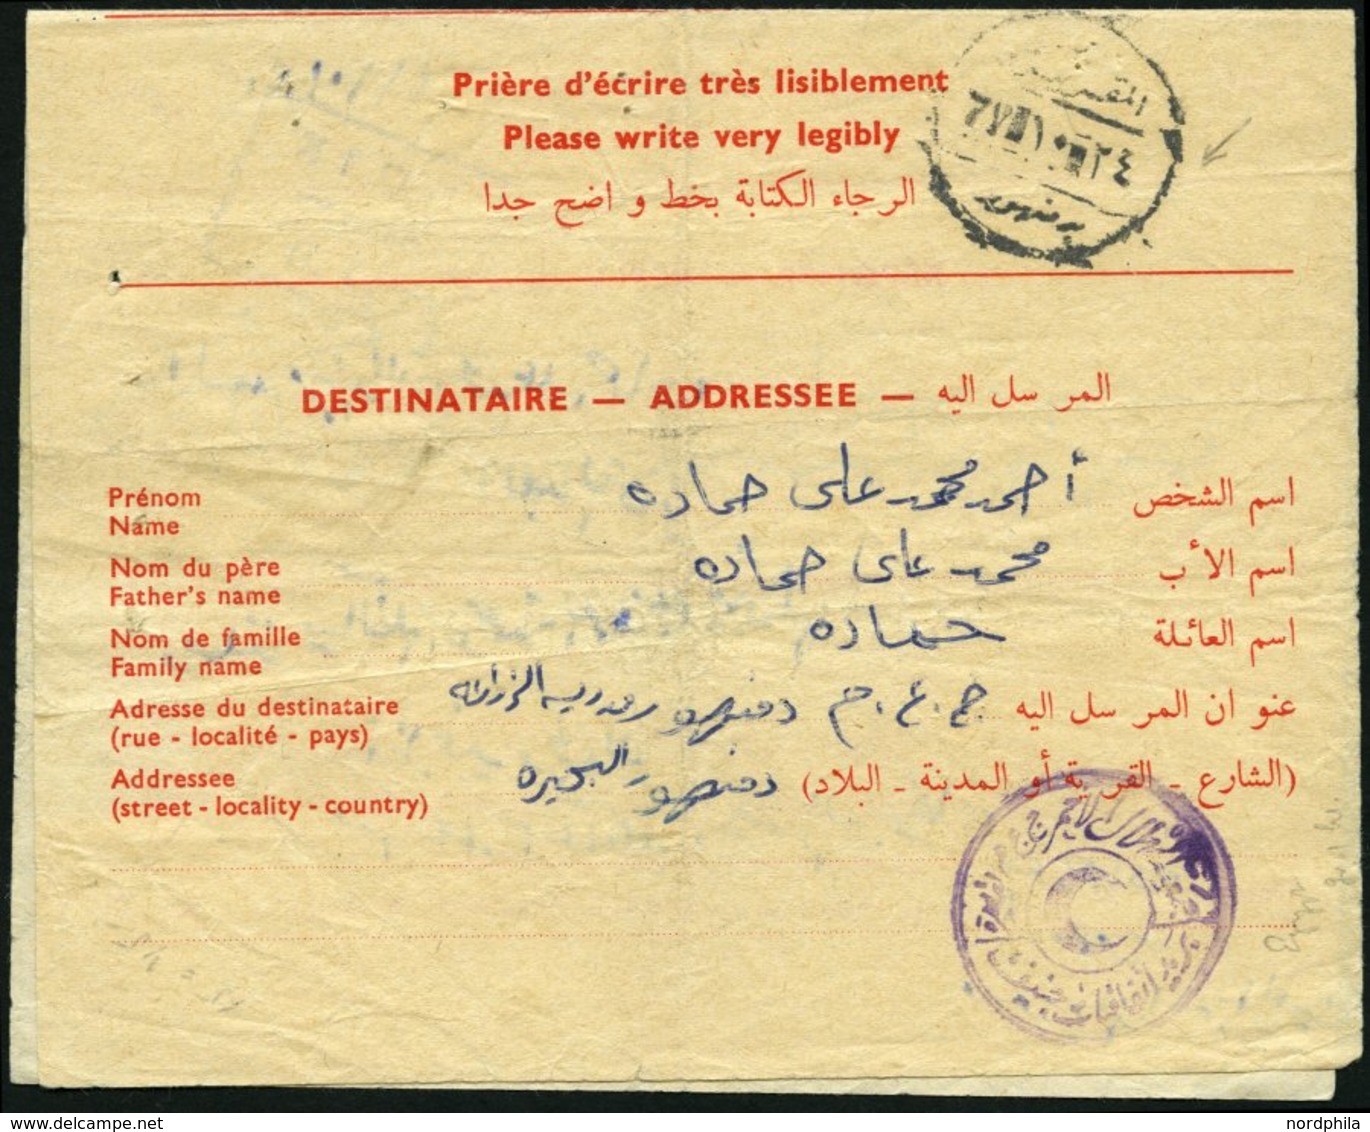 Prière d'écrire très lisiblement
Please write very legibly
الرجاء الكتابة بخط و اضح جدا
DESTINATAIRE — ADDRESSEE — المر سل اليه
Prénom
Name
أحمد محمد على حماده
اسم الشخص
Nom du père
Father's name
محمد على حماده
اسم الأب
Nom de famille
Family name
حماده
اسم العائلة
Adresse du destinataire
(rue - localité - pays)
ج.ع.م دمنهور
عنو ان المر سل اليه
Addressee
(street - locality - country)
دمنهور البحيره
(الشارع - القر ية أو المدينة - البلاد)
دمنهور
بريد اتفاقيات جنيف
nordphila